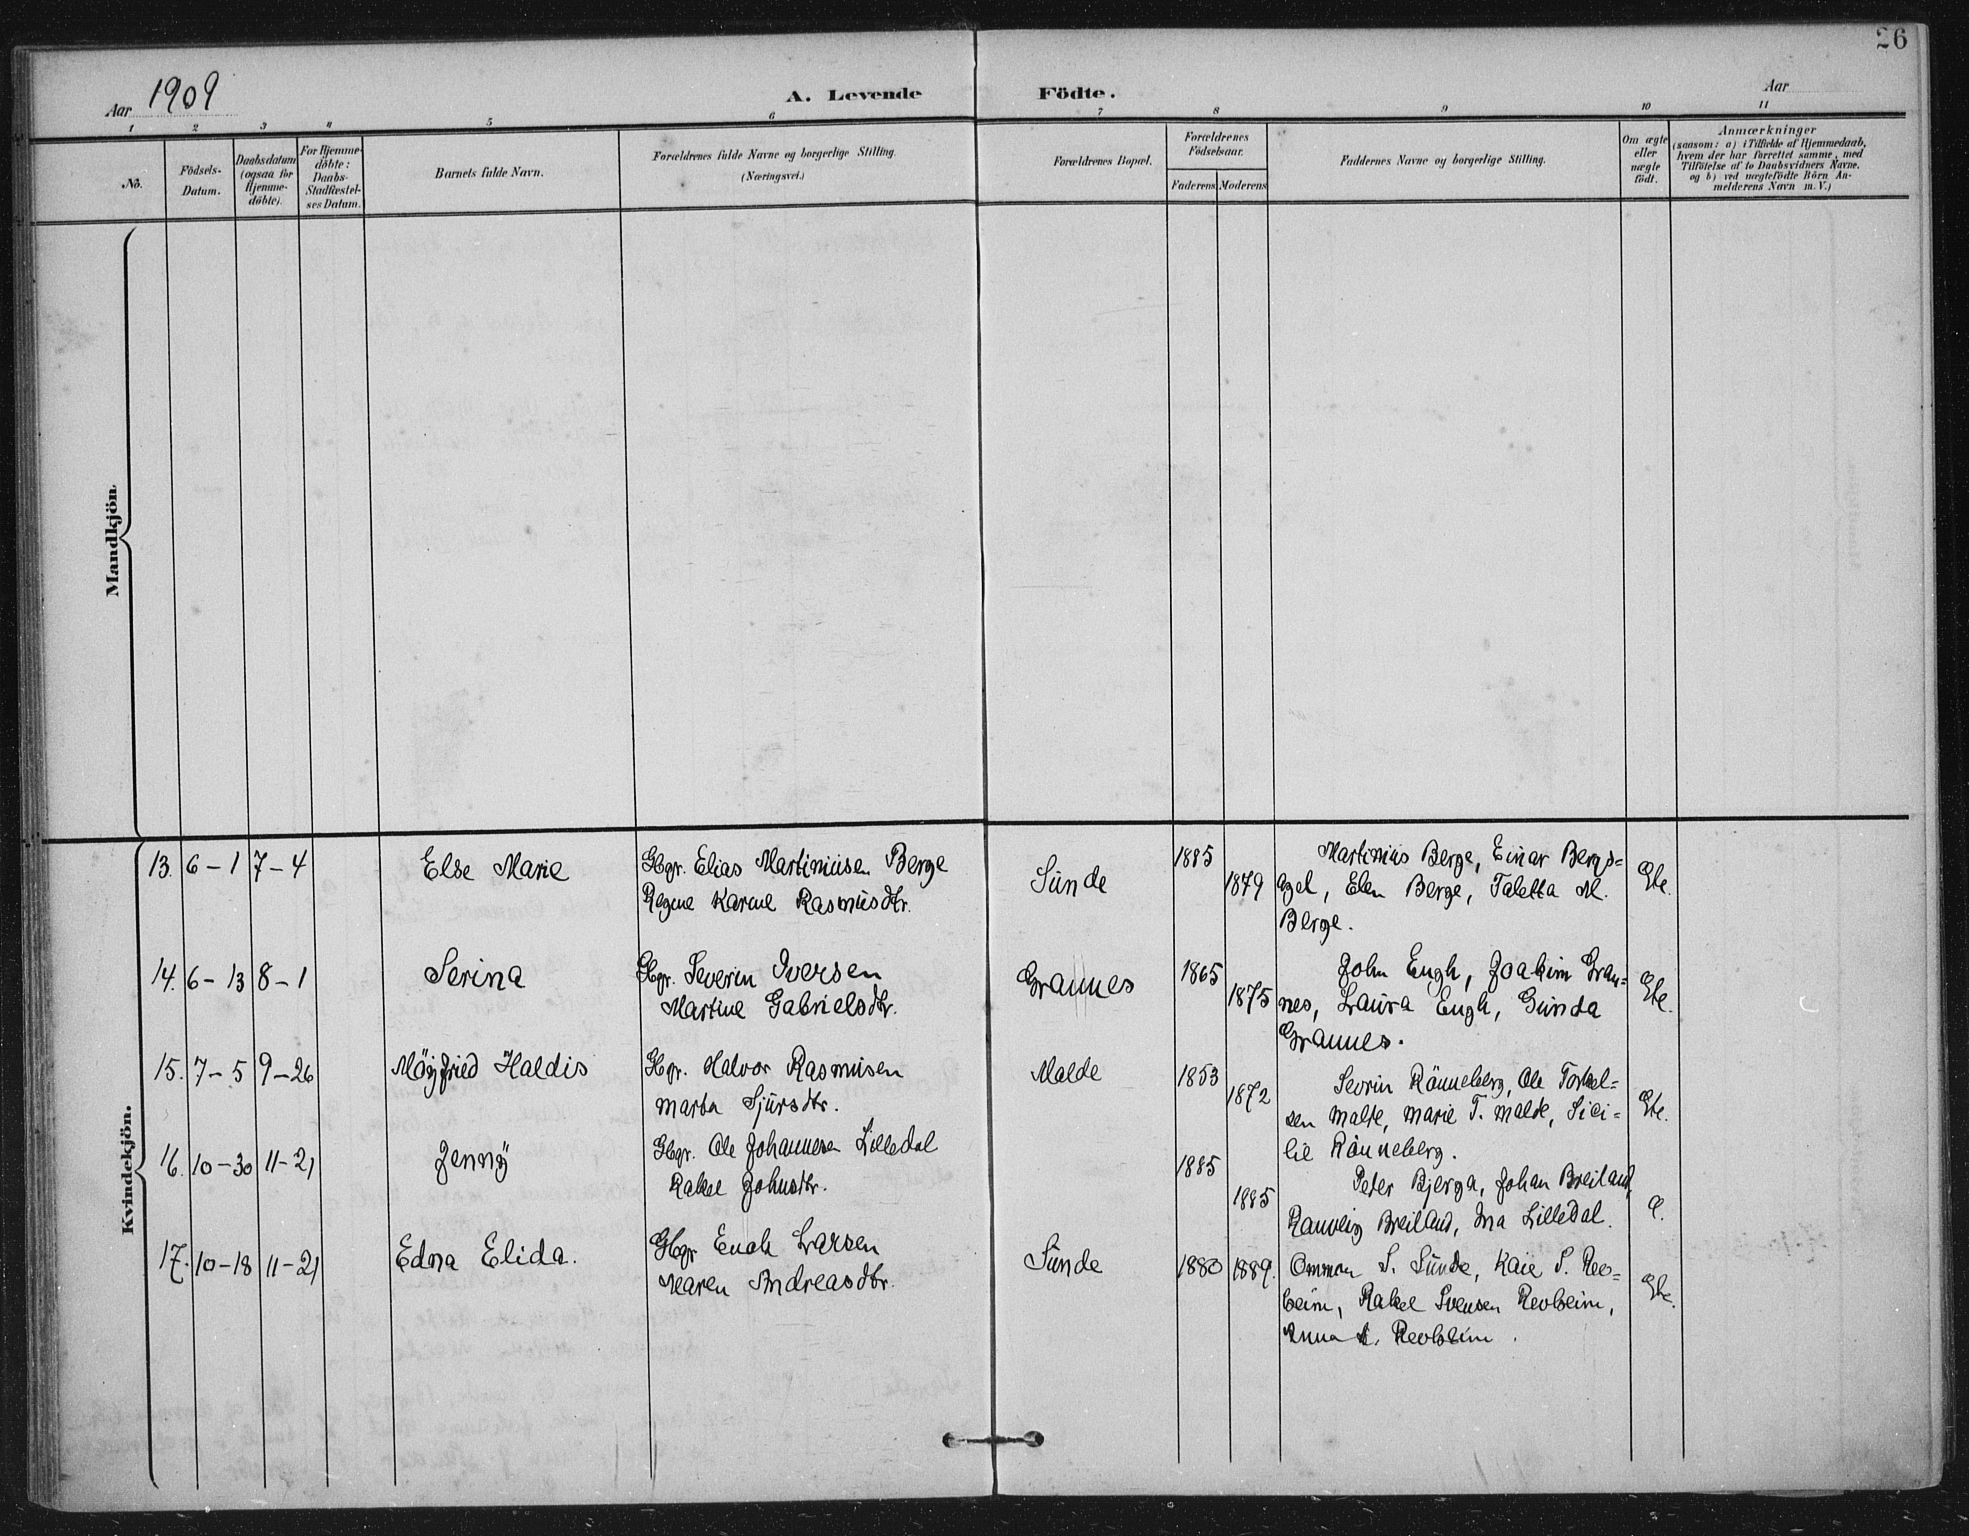 26
Aar 1909
A. Levende Födte.
Aar
1 2 3 4 5 6 7 8 9 10 11
No.
Födsels-
Datum.
Daabsdatum
(ogsaa for
Hjemme-
döbte).
For Hjemme-
döbte:
Daabs-
Stadfæstel-
ses Datum.
Barnets fulde Navn.
Forældrenes fulde Navne og borgerlige Stilling.
(Næringsvei.)
Forældrenes Bopæl.
Forældrenes
Födselsaar.
Faderens Moderens
Faddernes Navne og borgerlige Stilling.
Om ægte
eller
uægte
födt.
Anmærkninger
(saasom: a) i Tilfælde af Hjemmedaab,
hvem der har forrettet samme, med
Tilföielse af to Daabsvidners Navne.
og b) ved uægtefödte Börn An-
melderens Navn m. V.)
Mandkjön.
Kvindekjön.
13. 6-1 7-4 Else Marie
Gbgr. Elias Martiniusen Berge
Regine Karine Rasmusdtr.
Sunde 1885 1879
Martinius Berge, Einar Bergs=
agel, Elen Berge, Taletta M.
Berge.
Gte.
14. 6-13 8-1 Serina
Gbgr. Severin Iversen
Martine Gabrielsdtr.
Grannes 1865 1875
John Engh, Joakim Gran=
nes, Laura Engh, Gunda
Grannes.
Gte.
15. 7-5 9-26 Möyfried Haldis
Gbgr. Halvor Rasmusen
Marta Sjursdtr.
Malde 1853 1872
Sevrin Rönneberg, Ole Torkel=
sen Malde, Marie T. Malde, Sici=
lie Rönneberg.
Gte.
16. 10-30 11-21 Jenny
Gbgr. Ole Johannesen Lilledal
Rakel Johnsdtr.
1885 1885
Peter Bjerga, Johan Breiland,
Ranveig Breiland, Ina Lilledal.
17. 10-18 11-21 Edna Elida.
Gbgr Enok Larsen
Maren Andreasdtr.
Sunde 1880 1889.
Ommon S. Sunde, Kaie S. Rev=
heim, Rakel Svensen Revheim,
Anna Revheim.
Gte.